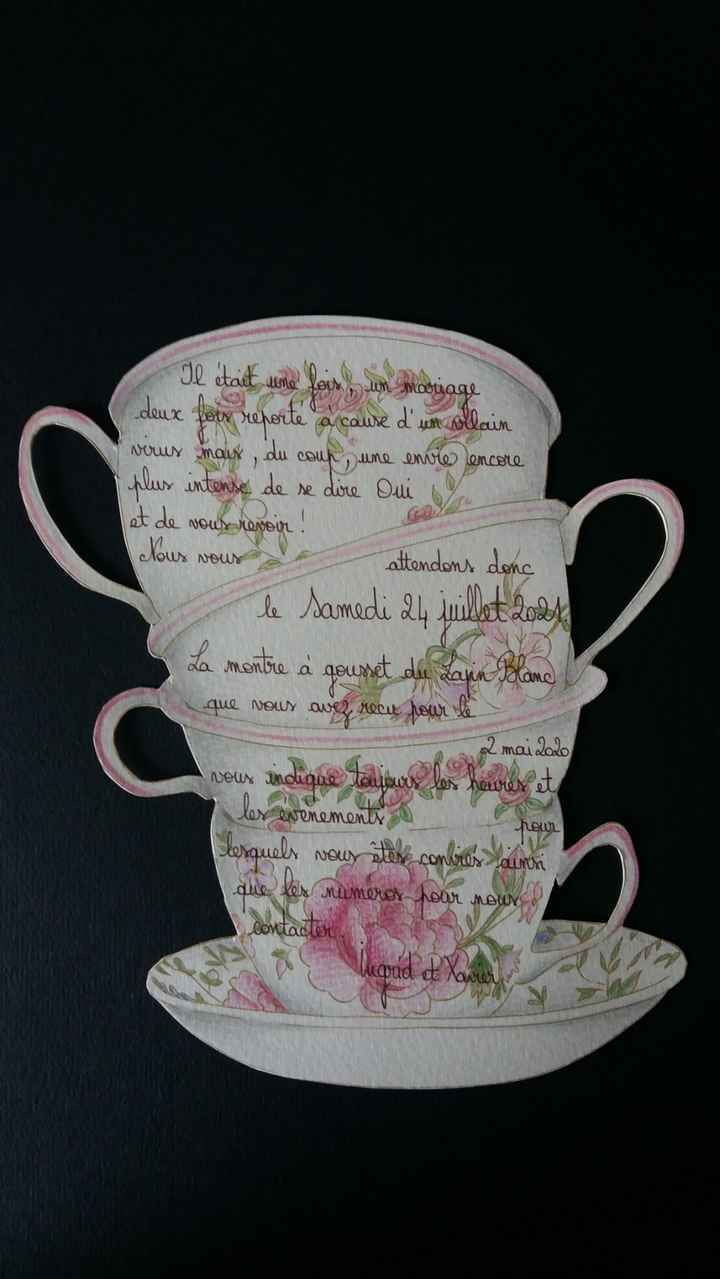 Il était une fois, un mariage
deux fois reporté à cause d'un vilain
virus mais, du coup, une envie encore
plus intense de se dire Oui
et de vous revoir !
Nous vous attendons donc
le Samedi 24 juillet 2021.
La montre à gousset du Lapin Blanc
que vous avez reçu pour le
2 mai 2020
vous indique toujours les heures et
les évenements pour
lesquels vous êtes conviés ainsi
que les numeros pour nous
contacter.
Ingrid et Xavier